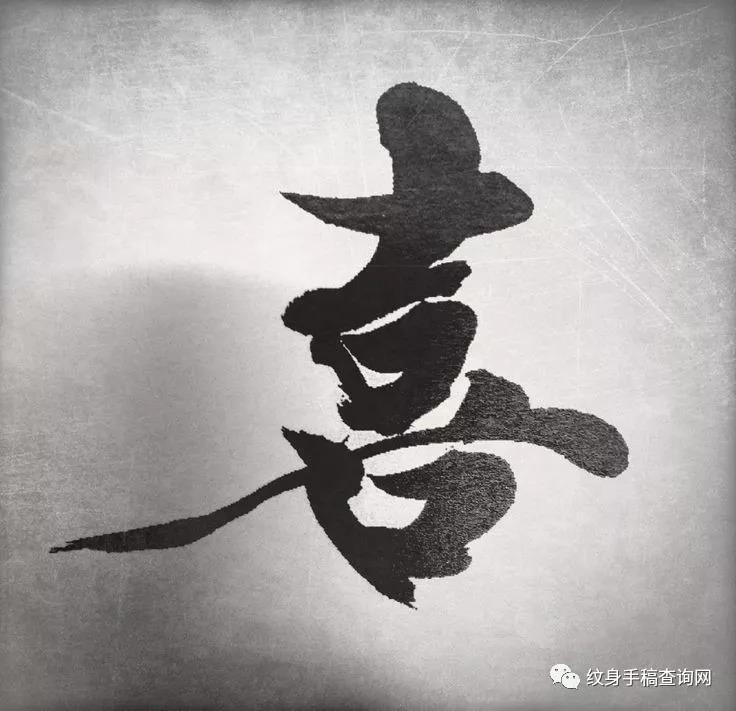 喜
纹身手稿查询网